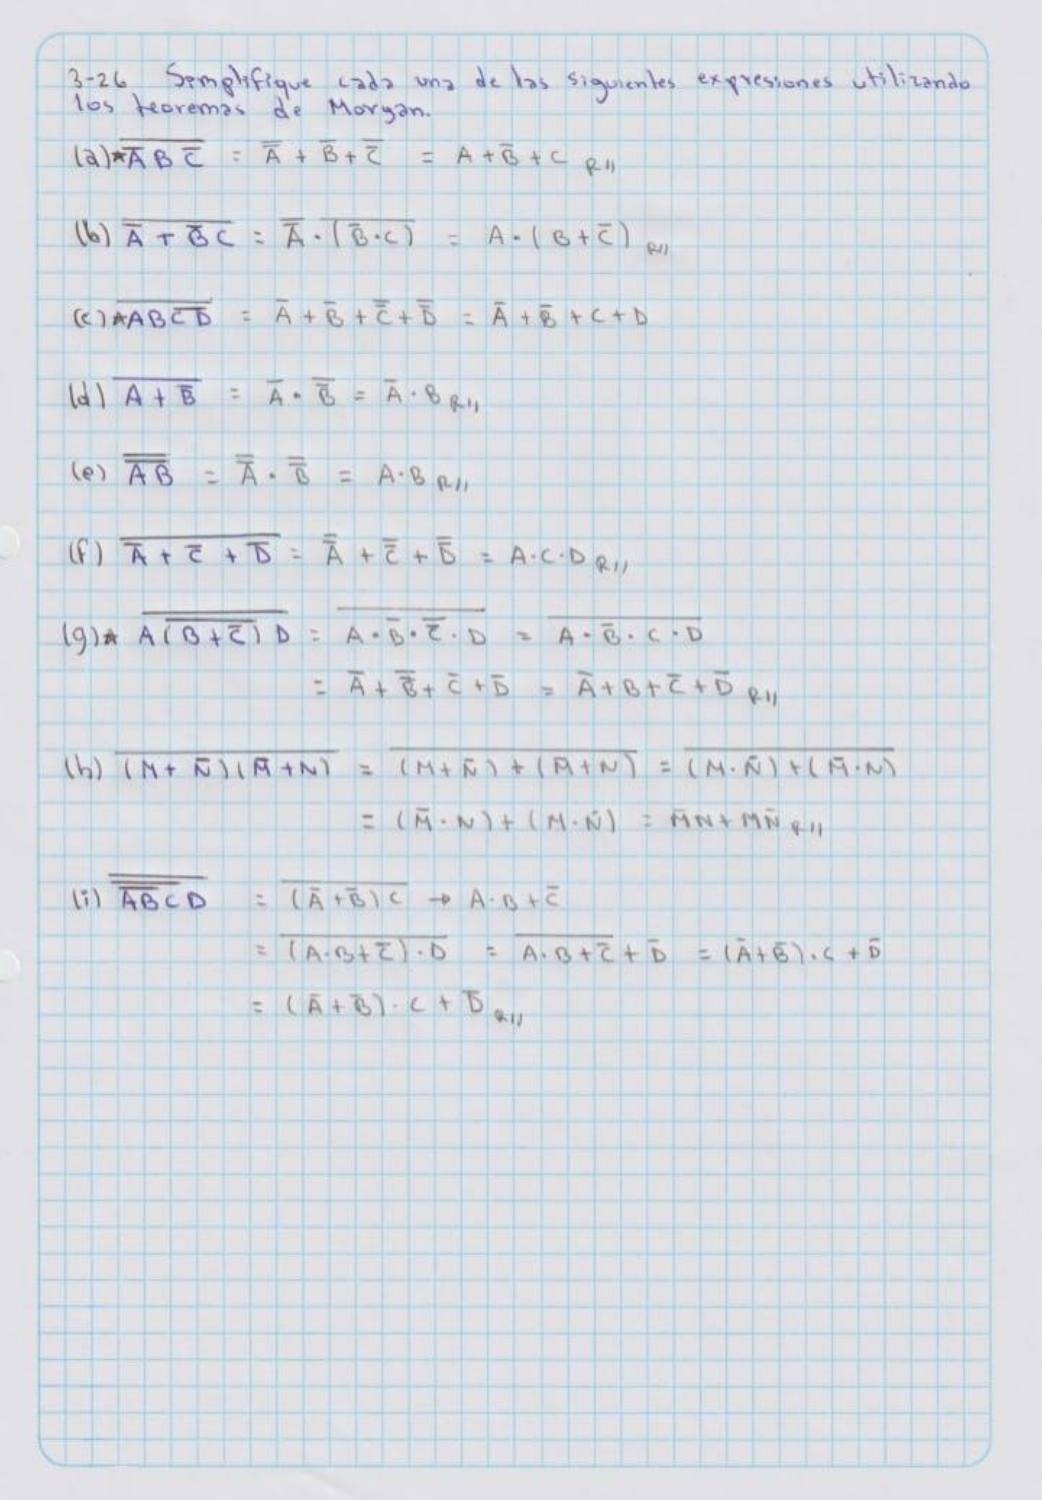 3-26 Semplifique cada una de las siguientes expresiones utilizando
los teoremas de Morgan.
(a)* \overline{\overline{A} B \overline{C}} = \overline{\overline{A}} + \overline{B} + \overline{\overline{C}} = A + \overline{B} + C R//
(b) \overline{\overline{A} + \overline{B} C} = \overline{\overline{A}} · \overline{(\overline{B} · C)} = A · (B + \overline{C}) R//
(c)* \overline{A B \overline{C} \overline{D}} = \overline{A} + \overline{B} + \overline{\overline{C}} + \overline{\overline{D}} = \overline{A} + \overline{B} + C + D
(d) \overline{A + \overline{B}} = \overline{A} · \overline{\overline{B}} = \overline{A} · B R//
(e) \overline{\overline{A B}} = \overline{\overline{A}} · \overline{\overline{B}} = A · B R//
(f) \overline{\overline{A} + \overline{C} + \overline{D}} = \overline{\overline{A}} + \overline{\overline{C}} + \overline{\overline{D}} = A · C · D R//
(g)* \overline{A \overline{(B + \overline{C})} D} = \overline{A · \overline{B} · \overline{\overline{C}} · D} = \overline{A · \overline{B} · C · D}
= \overline{A} + \overline{\overline{B}} + \overline{C} + \overline{D} = \overline{A} + B + \overline{C} + \overline{D} R//
(h) \overline{(M + \overline{N})(\overline{M} + N)} = \overline{(M + \overline{N}) + (\overline{M} + N)} = \overline{(M · \overline{N}) + (\overline{M} · N)}
= (\overline{M} · N) + (M · \overline{N}) = \overline{M} N + M \overline{N} R//
(i) \overline{\overline{\overline{A B} C} D} = \overline{(\overline{A} + \overline{B}) C} → A · B + \overline{C}
= \overline{(A · B + \overline{C}) · D} = \overline{A · B + \overline{C}} + \overline{D} = (\overline{A} + \overline{B}) · C + \overline{D}
= (\overline{A} + \overline{B}) · C + \overline{D} R//